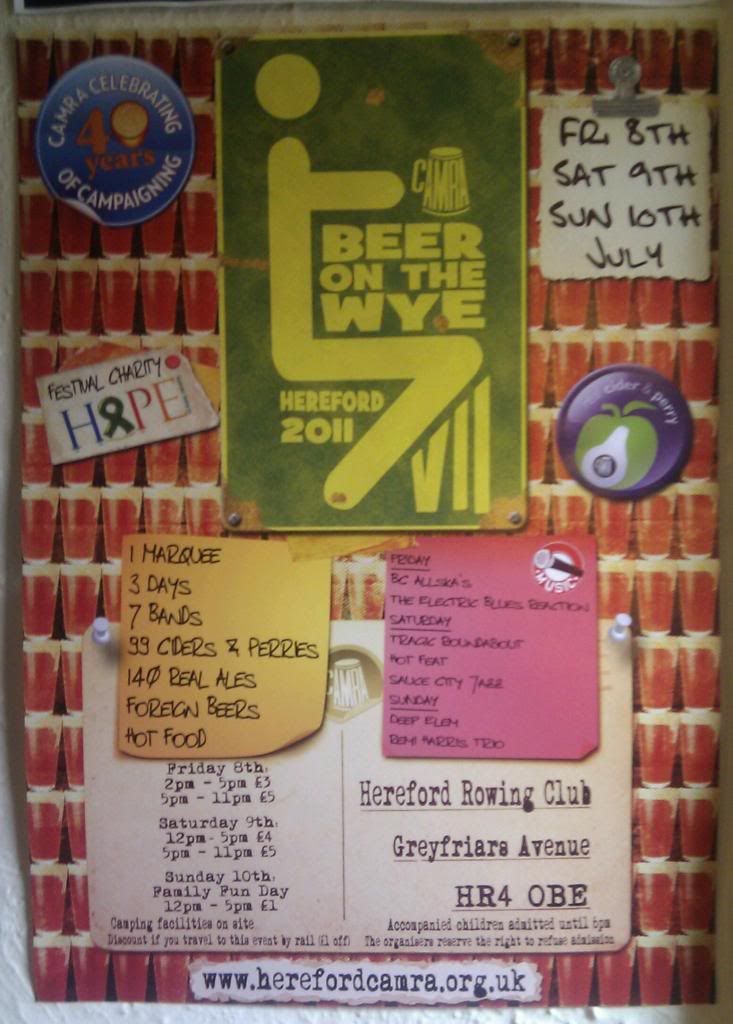 CAMRA CELEBRATING
40
years
OF CAMPAIGNING
CAMRA
BEER
ON THE
WYE
HEREFORD
2011
VII
FRI 8TH
SAT 9TH
SUN 10TH
JULY
FESTIVAL CHARITY
HOPE
cider & perry
1 MARQUEE
3 DAYS
7 BANDS
99 CIDERS & PERRIES
140 REAL ALES
FOREIGN BEERS
HOT FOOD
MUSIC
FRIDAY
BC ALLSKA'S
THE ELECTRIC BLUES REACTION
SATURDAY
TRAGIC ROUNDABOUT
HOT FEAT
SAUCE CITY JAZZ
SUNDAY
DEEP ELEM
REMI HARRIS TRIO
CAMRA
Friday 8th:
2pm - 5pm £3
5pm - 11pm £5
Saturday 9th:
12pm - 5pm £4
5pm - 11pm £5
Sunday 10th:
Family Fun Day
12pm - 5pm £1
Camping facilities on site
Discount if you travel to this event by rail (£1 off)
Hereford Rowing Club
Greyfriars Avenue
HR4 0BE
Accompanied children admitted until 6pm
The organisers reserve the right to refuse admission
www.herefordcamra.org.uk